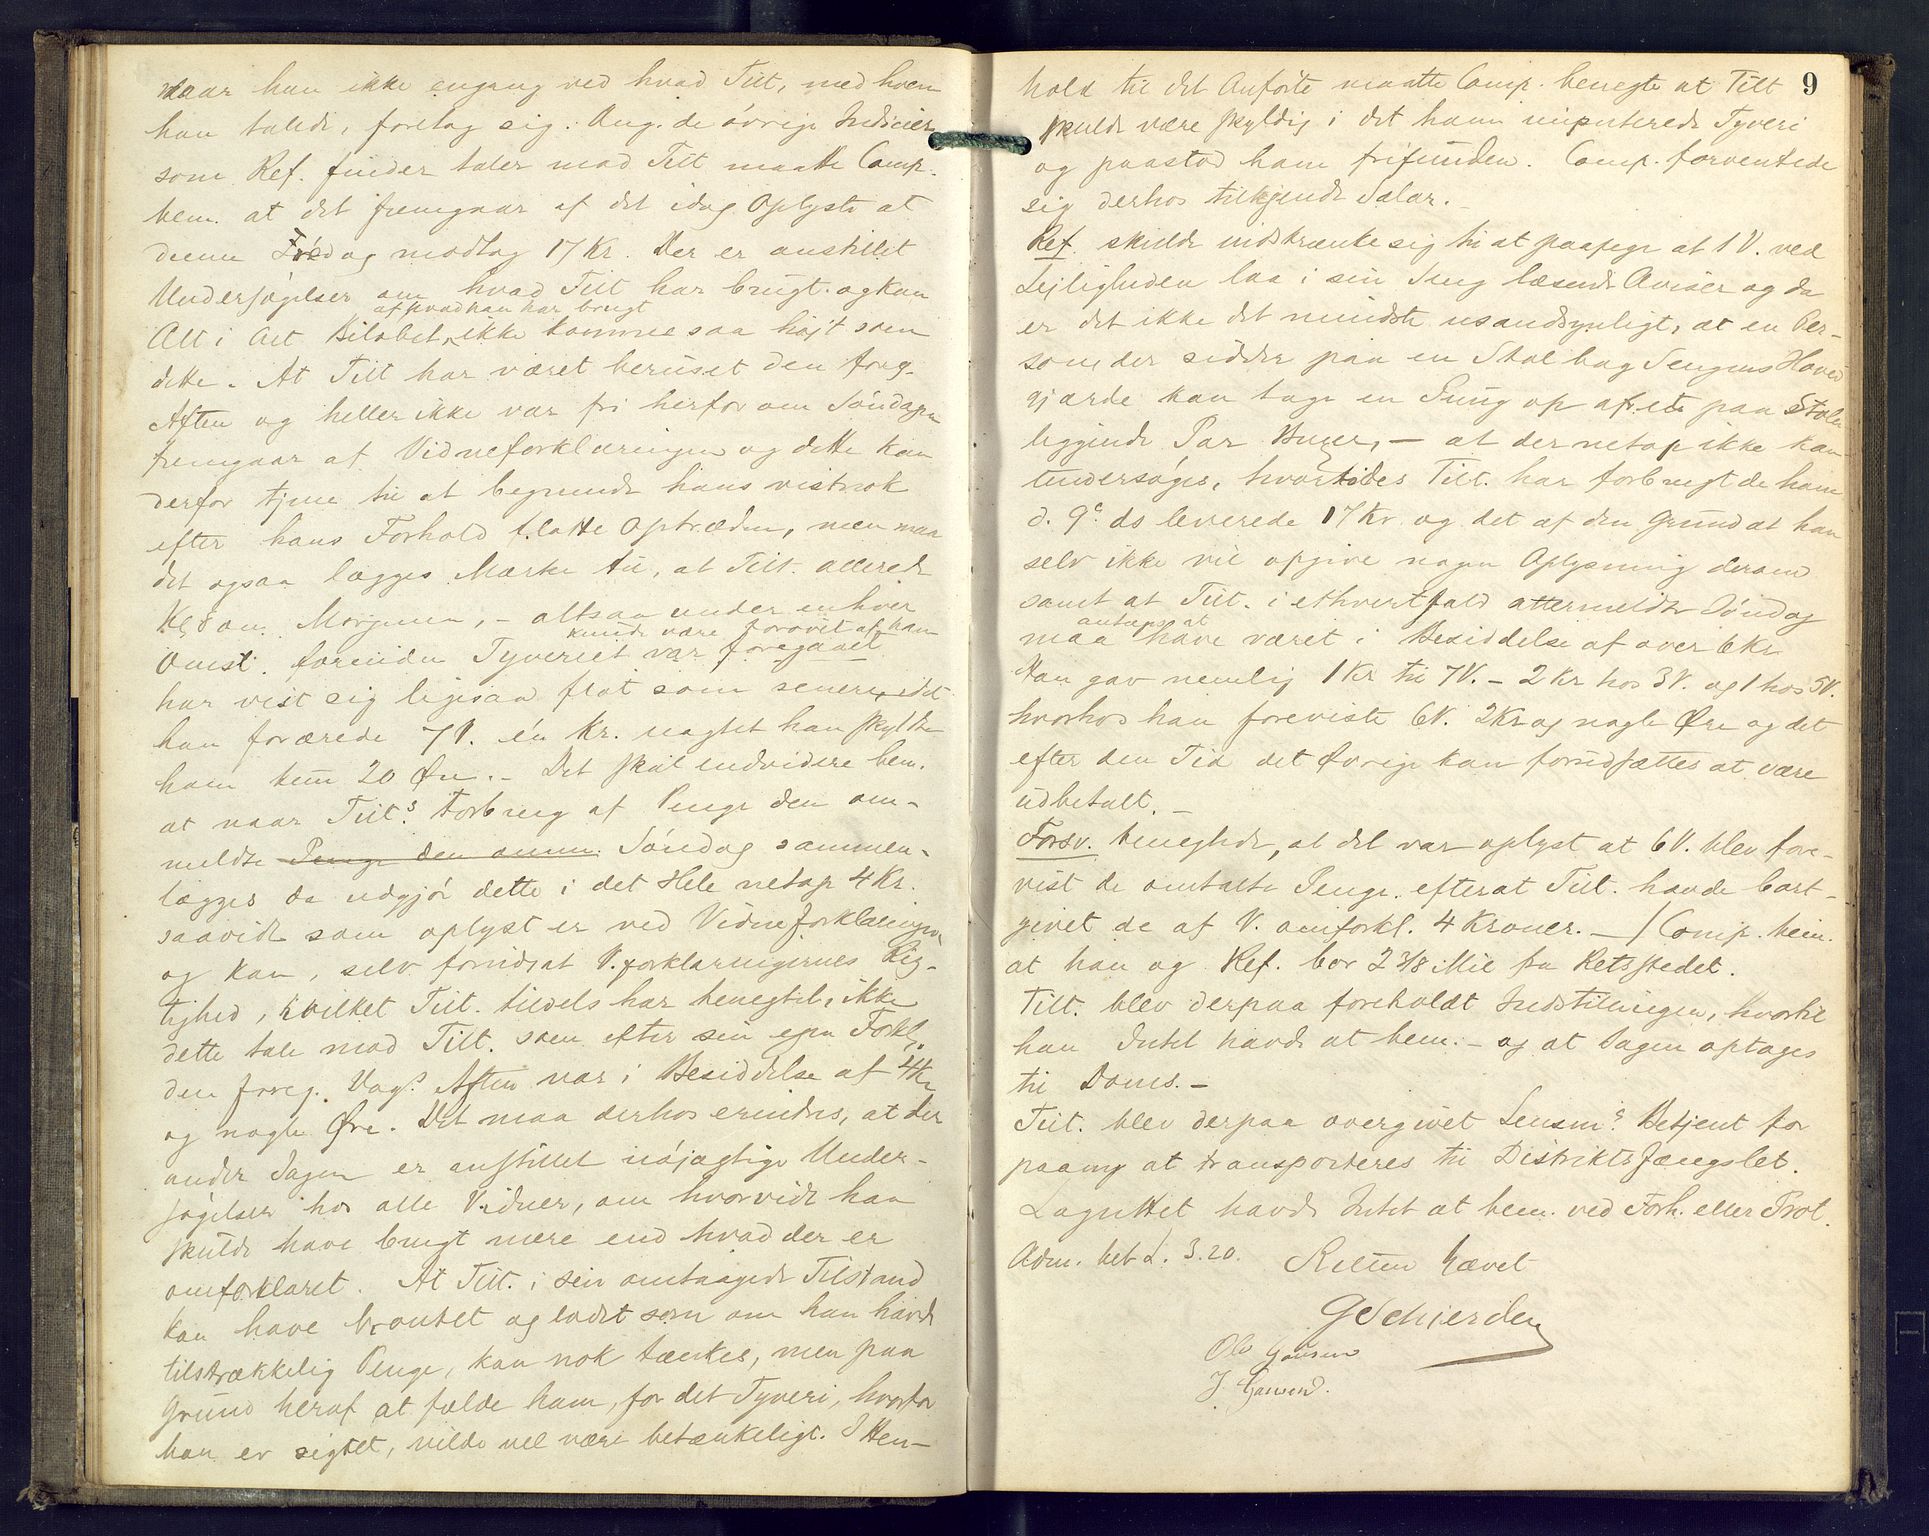 naar han ikke engang ved hvad Tilt, med hvem
han talede, foretog sig. Ang. de øvrige Indicier
som Ref. finder taler mod Tilt maatte Comp.
bem. at det fremgaar af det idag Oplyste at
denne Fredag modtog 17 Kr. Der er anstillet
Undersøgelser om hvad Tilt har brugt og kan
af hvad han har brugt
Alt i Alt Beløbet ikke komme saa højt som
dette. At Tilt har været beruset den foreg.
Aften og heller ikke var fri herfor om Søndagen
fremgaar af Vidneforklaringen og dette kan
derfor tjene til at begrunde hans vistnok
efter hans Forhold flotte Optræden, men maa
det ogsaa lægges Mærke til, at Tilt. allerede
Kl 8 om Morgenen, - altsaa under enhver
kunde være forøvet af ham
Omst. forinden Tyveriet var foregaaet
har vist sig ligesaa flot som senere, idet
han forærede 7 V. én Kr. uagtet han skyldte
ham kun 20 Øre. - Det skal endvidere bem.
at naar Tilts. Forbrug af Penge den om-
meldte Penge den omm. Søndag sammen-
lægges da udgjør dette i det Hele netop 4 Kr.
saavidt som oplyst er ved Vidneforklaringen
og kan, selv forudsat V.forklaringernes Rig-
tighed, hvilket Tilt. tildels har benegtet, ikke
dette tale mod Tilt. som efter sin egen Forkl.
den foreg. Dags Aften var i Besiddelse af 4 Kr
og nogle Øre. Det maa derhos erindres, at der
under Sagen er anstillet nøjagtige Under-
søgelser hos alle Vidner, om hvorvidt han
skulde have brugt mere end hvad der er
omforklaret. At Tilt. i sin omtaagede Tilstand
kan have brautet og ladet som om han havde
tilstrækkelig Penge, kan nok tænkes, men paa
Grund heraf at fælde ham, for det Tyveri, hvorfor
han er sigtet, vilde vel være betænkeligt. I Hen-
9
hold til det Anførte maatte Comp. benegte at Tilt
skulde være skyldig i det ham imputerede Tyveri
og paastod ham frifunden. Comp. forventede
sig derhos tilkjendt Salar. -
Ref. skulde indskrænke sig til at paapege at 1 V. ved
Lejligheden laa i sin Seng læsende Aviser og da
er det ikke det mindste usandsynligt, at en Per-
son, der sidder paa en Stol bag Sengens Hoved
gjærde kan tage en Pung op af et paa Stolen
liggende Par Buxer, - at der netop ikke kan
undersøges, hvortildes Tilt. har forbrugt de ham
d. 9de ds leverede 17 Kr. og det af den Grund at han
selv ikke vil opgive nogen Oplysning derom
samt at Tilt. i ethvert fald ommeldte Søndag
antages at
maa have været i Besiddelse af over 6 Kr
Han gav nemlig 1 Kr til 7 V. - 2 Kr hos 3 V. og 1 hos 5 V.
hvorhos han foreviste 6 V. 2 Kr og nogle Øre og det
efter den Tid det Øvrige kan forudsættes at være
udbetalt. -
Forsv. benegtede, at det var oplyst at 6 V. blev fore-
vist de omtalte Penge efterat Tilt. havde bort-
givet de af V. omforkl. 4 Kroner. - / Comp. bem.
at han og Ref. bor 2 3/8 Mil fra Retsstedet.
Tilt. blev derpaa foreholdt Indstillingen, hvortil
han Intet havde at bem. - og at Sagen optages
til Doms. -
Tilt. blev derpaa overgivet Lensms. Betjent for
paany at transporteres til Distriktsfængslet.
Lagrettet havde Intet at bem. ved Forh. eller Prot.
Adm. bet. 3.20. Retten hævet
G Schjerden
Ole Hansen
J. Hansen.